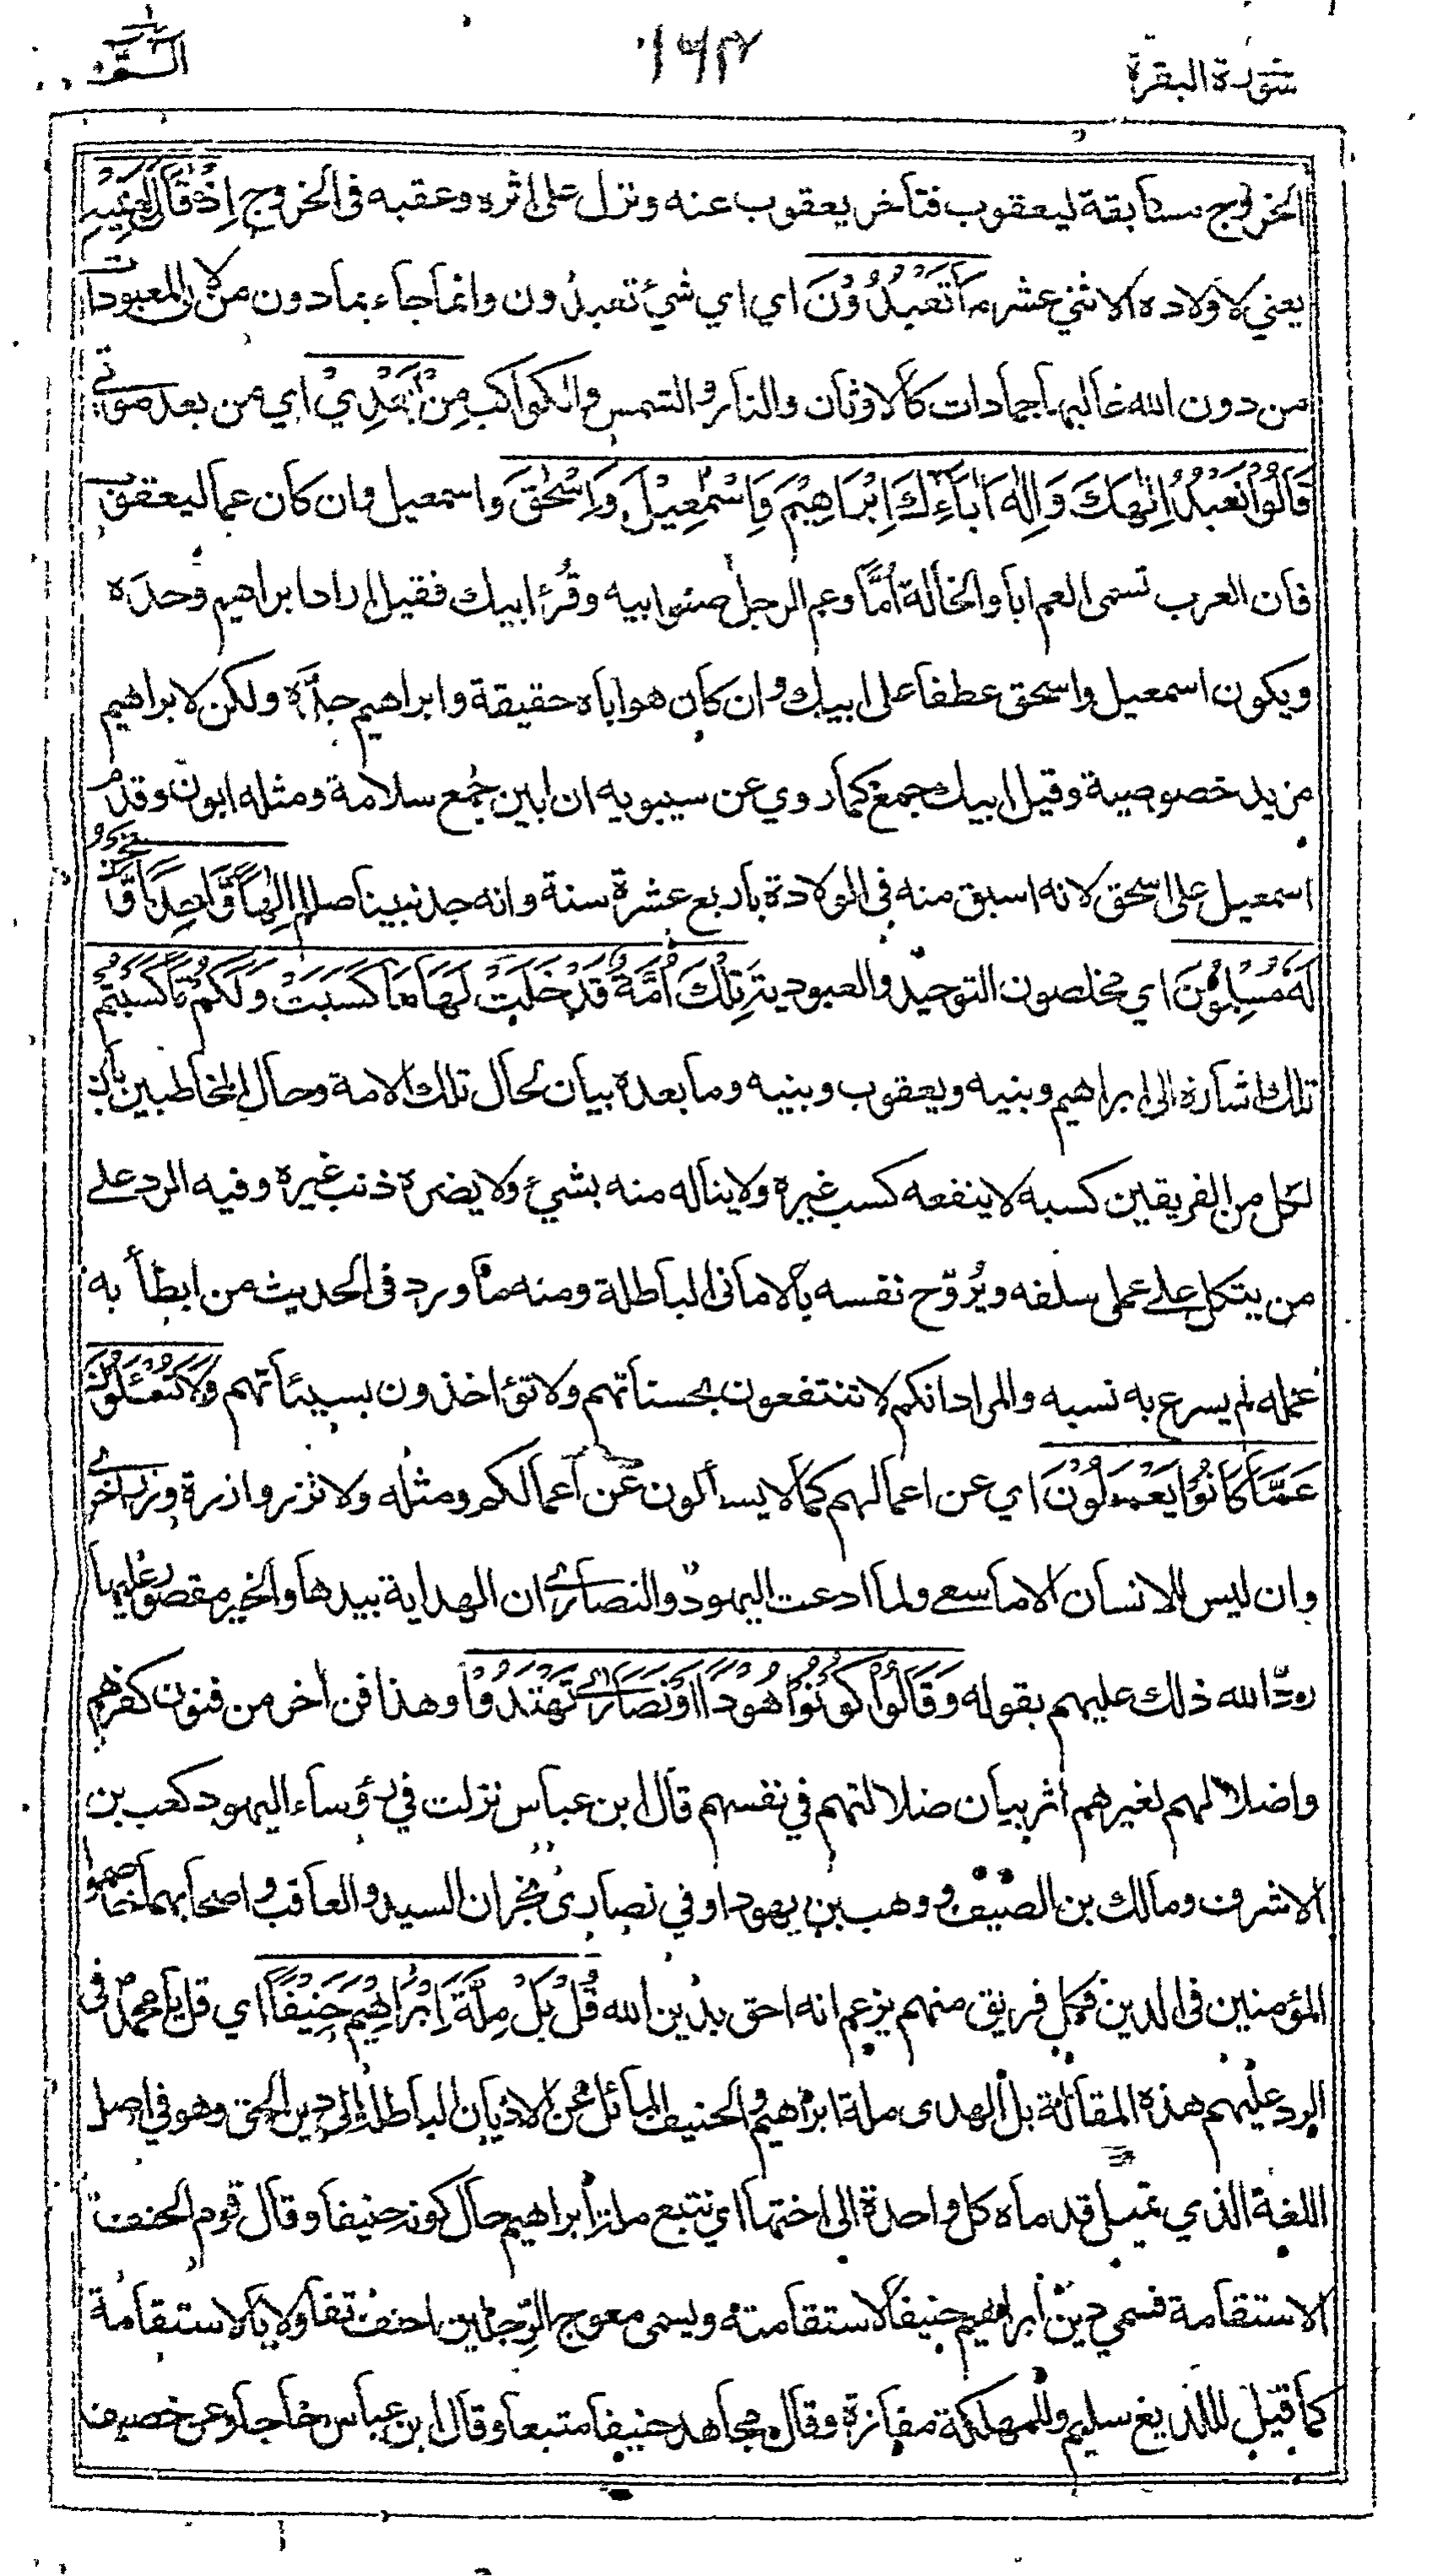 سورة البقرة ١٦٣ الم
الخروج مسابقة ليعقوب فتأخر يعقوب عنه ونزل على اثره وعقبه فى الخروج اِذْ قَالَ لِبَنِيْهِ
يعني لاولاده الاثني عشر مَا تَعْبُدُوْنَ اي اي شئ تعبدون وانما جاء بما دون من لان المعبودات
من دون الله غالبها جمادات كالاوثان والنار والشمس والكواكب مِنْ بَعْدِيْ اي من بعد موتي
قَالُوْا نَعْبُدُ اِلٰهَكَ وَاِلٰهَ اٰبَآءِكَ اِبْرَاهِيْمَ وَاِسْمٰعِيْلَ وَاِسْحٰقَ واسمعيل وان كان عما ليعقوب
فان العرب تسمى العم ابا والخالة اُمًّا وعم الرجل صنو ابيه وقُرئ ابيك فقيل اراد ابراهيم وحده
ويكون اسمعيل واسحق عطفا على ابيك وان كان هو اباه حقيقة وابراهيم جدَّه ولكن لابراهيم
مزيد خصوصية وقيل ابيك جمع كما روي عن سيبويه ان ابين جمع سلامة ومثله ابون وقدم
اسمعيل على اسحق لانه اسبق منه فى الولادة باربع عشرة سنة وانه جد نبينا صللم اِلٰهًا وَّاحِدًا وَّنَحْنُ
لَهٗ مُسْلِمُوْنَ اي مخلصون التوحيد والعبودية تِلْكَ اُمَّةٌ قَدْ خَلَتْ لَهَا مَا كَسَبَتْ وَلَكُمْ مَّا كَسَبْتُمْ
تلك اشارة الى ابراهيم وبنيه ويعقوب وبنيه وما بعده بيان لحال تلك الامة وحال المخاطبين بان
لكل من الفريقين كسبه لا ينفعه كسب غيره ولا يناله منه بشئ ولا يضره ذنب غيره وفيه الرد على
من يتكل على عمل سلفه ويُروّح نفسه بالامانى الباطلة ومنه ما ورد فى الحديث من ابطأ به
عمله لم يسرع به نسبه والمراد انكم لا تنتفعون بحسناتهم ولا تؤاخذون بسيئاتهم وَلَا تُسْئَلُوْنَ
عَمَّا كَانُوْا يَعْمَلُوْنَ اي عن اعمالهم كما لا يسألون عن اعمالكم ومثله ولا تزر وازرة وزر اخرى
وان ليس للانسان الا ما سعى ولما ادعت اليهود والنصارى ان الهداية بيدها والخير مقصور عليها
ردّ الله ذلك عليهم بقوله وَقَالُوْا كُوْنُوْا هُوْدًا اَوْ نَصَارٰى تَهْتَدُوْا وهذا فن اخر من فنون كفرهم
واضلالهم لغيرهم اثر بيان ضلالتهم في نفسهم قال ابن عباس نزلت في رؤساء اليهود كعب بن
الاشرف ومالك بن الصيف ووهب بن يهودا وفي نصارى نجران السيد والعاقب واصحابهما خاصموا
المؤمنين فى الدين فكل فريق منهم يزعم انه احق بدين الله قُلْ بَلْ مِلَّةَ اِبْرَاهِيْمَ حَنِيْفًا اي قل يا محمد فى
الرد عليهم هذه المقالة بل الهدى ملة ابراهيم والحنيف المائل عن الاديان الباطلة الى دين الحق وهو في اصل
اللغة الذي تميل قدماه كل واحدة الى اختها اي نتبع ملة ابراهيم حال كونه حنيفا وقال قوم الحنف
الاستقامة فسمي دين ابراهيم حنيفا لاستقامته ويسمى معوج الرِّجلين احنف تفاولا بالاستقامة
كما قيل للديغ سليم وللمهلكة مفازة وقال مجاهد حنيفا متبعا وقال ابن عباس حاجا وعن خصيف